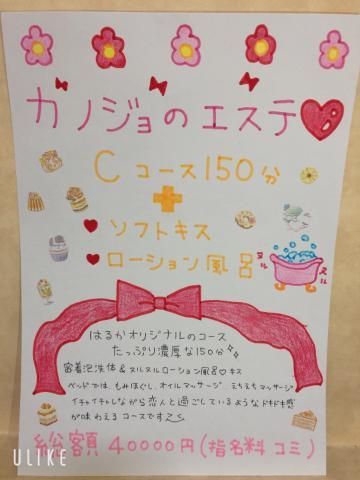 カノジョのエステ
Cコース150分
+
♥ソフトキス
♥ローション風呂
ヌル
ヌル
はるかオリジナルのコース
たっぷり濃厚な150分
密着泡洗体&ヌルヌルローション風呂♡キス
ベッドでは、もみほぐし、オイルマッサージ、
イチャイチャしながら恋人と過ごしているようなドキドキ感
が味わえるコースです
総額 40000円(指名料コミ)
ULIKE